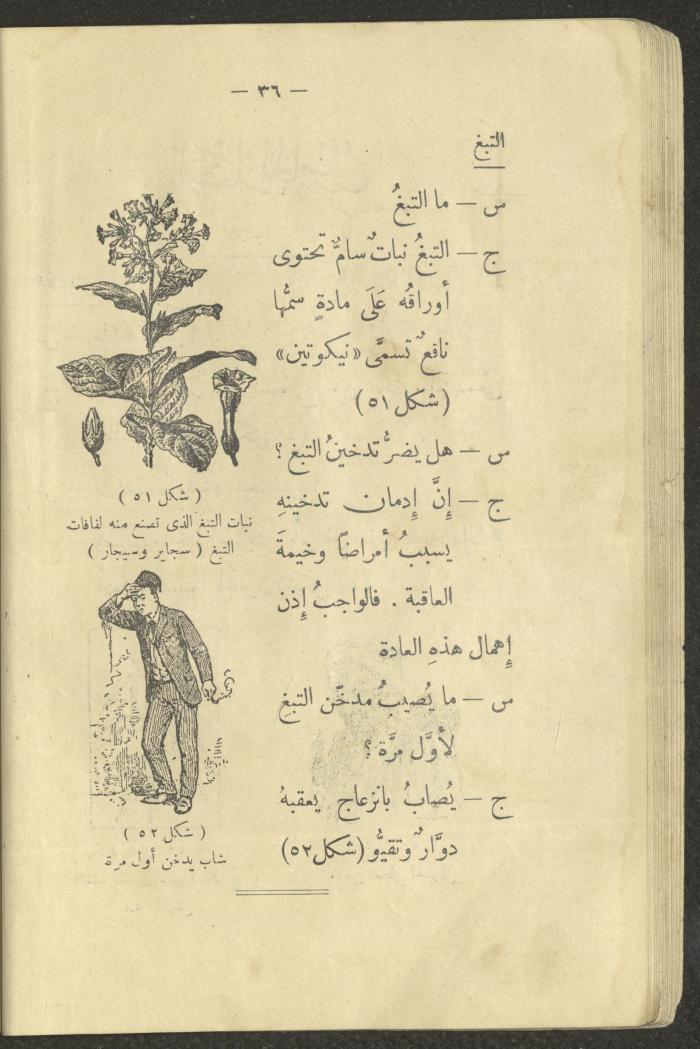 — ٣٦ —
التبغ
س — ما التبغُ
ج — التبغُ نباتٌ سامٌّ تحتوى
أوراقُه عَلَى مادةٍ سمُّها
ناقعٌ تسمَّى «نيكوتين»
(شكل ٥١)
س — هل يضرُّ تدخينُ التبغ ؟
ج — إِنَّ إِدمان تدخينهِ
يسببُ أمراضاً وخيمةَ
العاقبة . فالواجبُ إِذن
إِهمال هذهِ العادة
س — ما يُصيبُ مدخّن التبغ
لأوَّل مرَّة ؟
ج — يُصابُ بانزعاج يعقبهُ
دوَّارٌ وتقيُّؤ (شكل ٥٢)
( شكل ٥١ )
نبات التبغ الذى تصنع منه لفافات
التبغ ( سجاير وسيجار )
( شكل ٥٢ )
شاب يدخن أول مرة